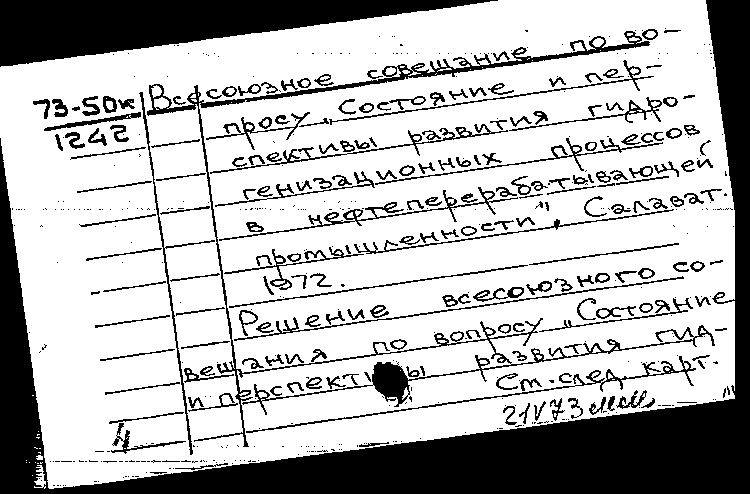 73-50к Всесоюзное совещание по во-
1242 просу „Состояние и пер-
спективы развития гидро-
генизационных процессов
в нефтеперерабатывающей
промышленности", Салават.
1972.
Решение всесоюзного со-
вещания по вопросу „Состояние
и перспективы развития гид-
См. след. карт.
4 21V73